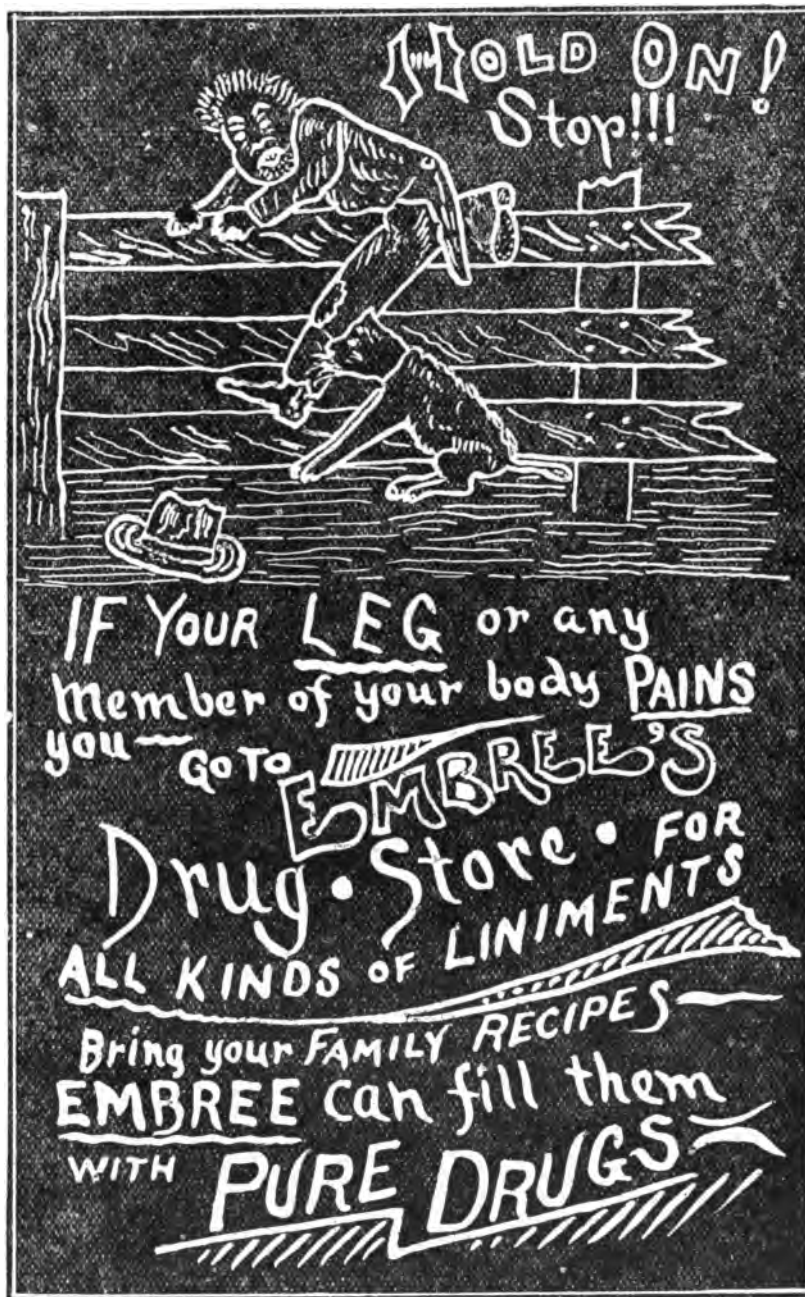 HOLD ON!
Stop!!!
IF YOUR LEG or any
Member of your body PAINS
you — GO TO EMBREE'S
Drug • Store • FOR
ALL KINDS OF LINIMENTS
Bring your FAMILY RECIPES —
EMBREE can fill them
WITH PURE DRUGS